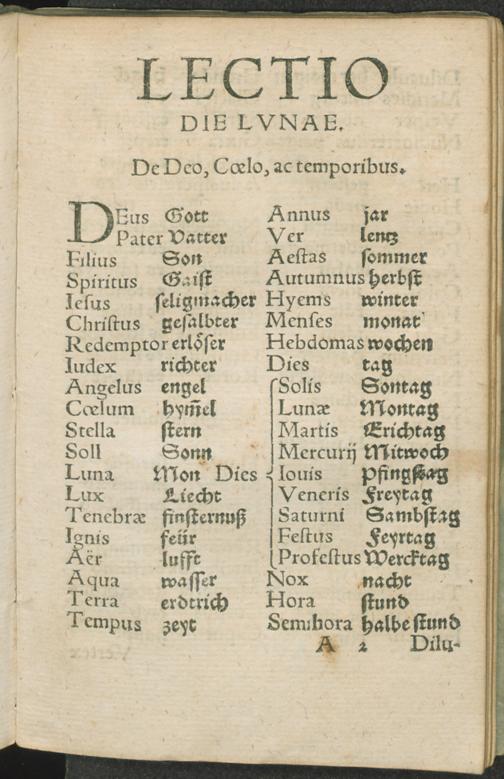 LECTIO
DIE LVNAE.
De Deo, Cœlo, ac temporibus.
DEus Gott
Pater Vatter
Filius Son
Spiritus Gaiſt
Ieſus ſeligmacher
Chriſtus geſalbter
Redemptor erlöſer
Iudex richter
Angelus engel
Cœlum hym̄el
Stella ſtern
Soll Sonn
Luna Mon
Lux Liecht
Tenebræ finſternuß
Ignis feür
Aër lufft
Aqua waſſer
Terra erdtrich
Tempus zeyt
Annus jar
Ver lentz
Aeſtas ſommer
Autumnus herbſt
Hyems winter
Menſes monat
Hebdomas wochen
Dies tag
Dies
Solis Sontag
Lunæ Montag
Martis Erichtag
Mercurij Mitwoch
Iouis Pfingſtag
Veneris Freytag
Saturni Sambſtag
Feſtus Feyrtag
Profeſtus Wercktag
Nox nacht
Hora ſtund
Semihora halbe ſtund
A 2 Dilu-